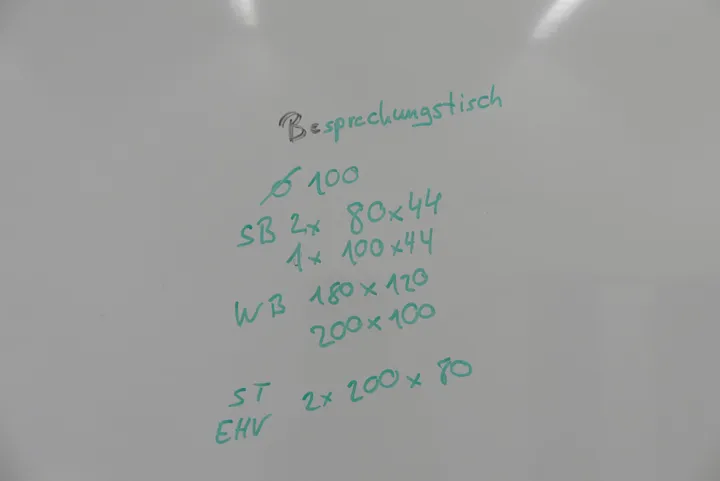 Besprechungstisch
Ø 100
SB 2x 80x44
1x 100x44
WB 180x120
200x100
ST 2x 200x80
EHV